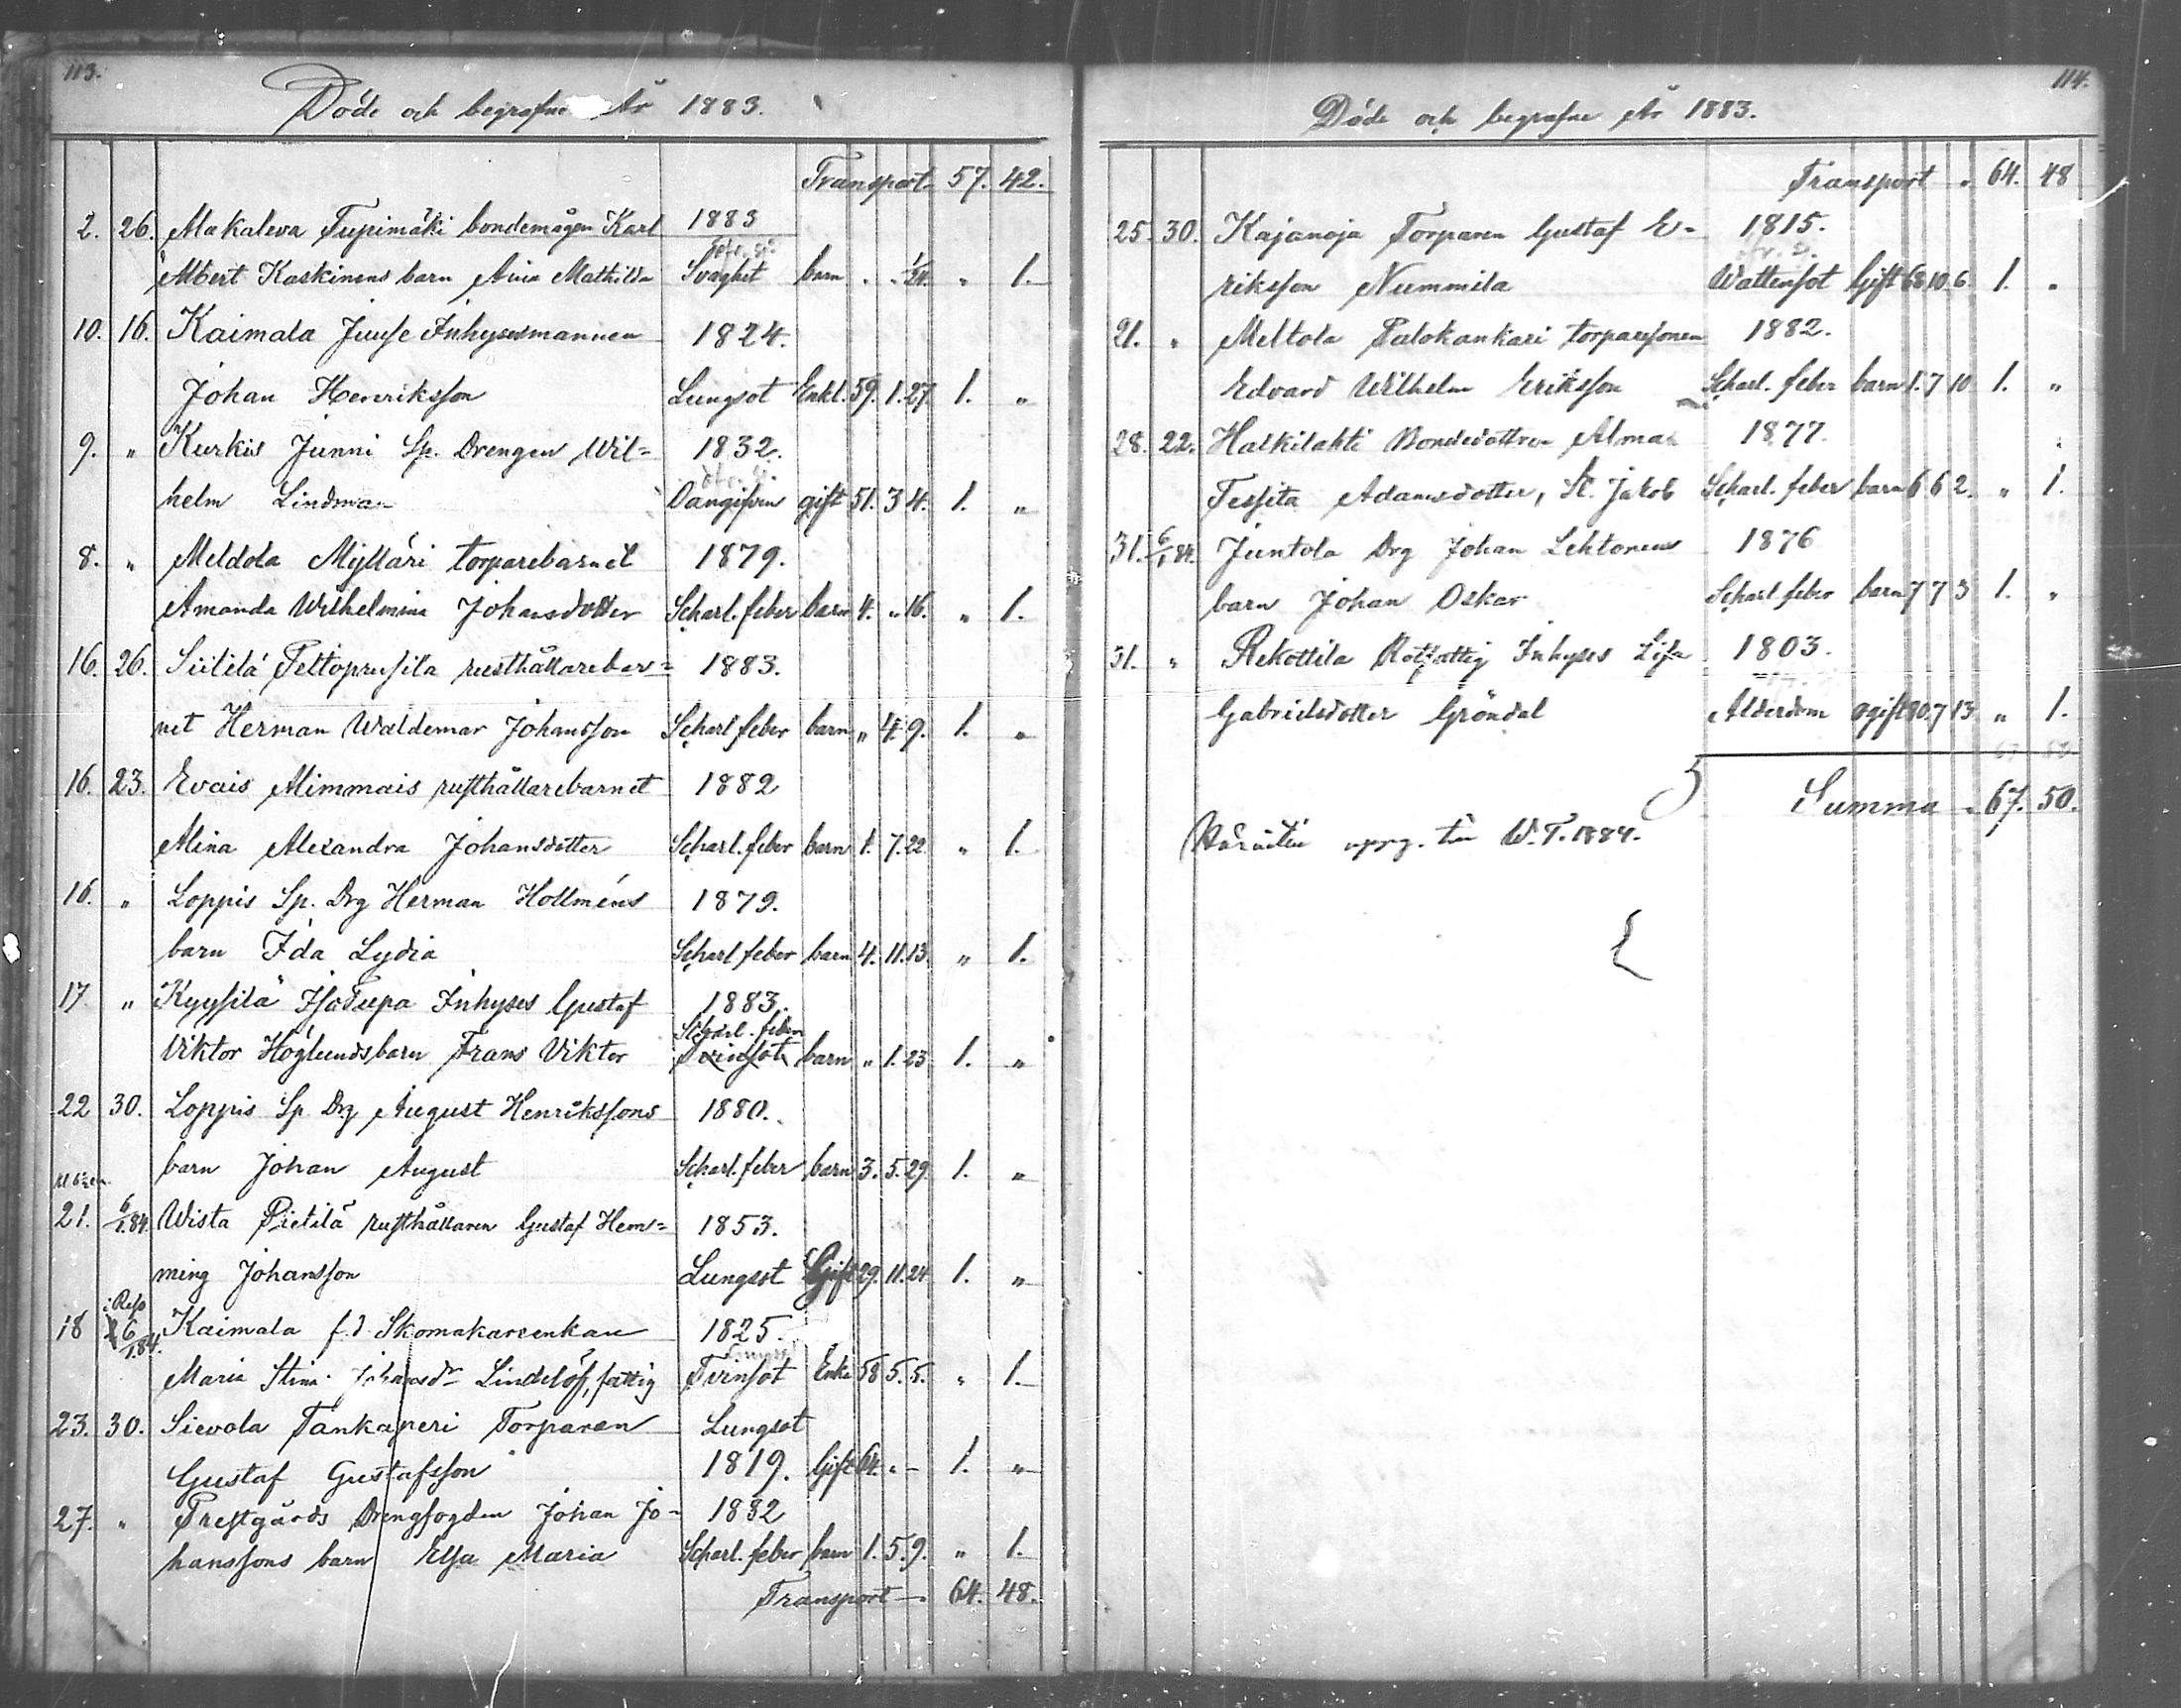 113.
Döde och begrafne År 1883.
Transport 57. 42.
2. 26. Makaleva Tupimäki bondemågen Karl 1883
Albert Kaskinens barn Aina Mathilda Svaghet barn „ „ 1/24. „ 1.
10. 16. Kaimala Juuse Inhysesmannen 1824.
Johan Henriksson Lungsot Enkl. 59. 1. 27. 1. „
9. „ Kurkis Junni Sp. Drengen Wil= 1832.
helm Lindman Oangifven gift 51. 3 4. 1. „
8. „ Meldola Mylläri torparebarnet 1879.
Amanda Wilhelmina Johansdotter Scharl. feber barn 4. „ 16. „ 1.
16. 26. Siitilä Peltoprusila rusthållarebar= 1883.
net Herman Waldemar Johansson Scharl feber barn „ 4. 9. 1. „
16. 23. Evais Mimmais rusthållarebarnet 1882
Alina Alexandra Johansdotter Scharl. feber barn 1. 7. 22. „ 1.
16. „ Loppis Sp. Drg Herman Hollméns 1879.
barn Ida Lydia Scharl feber barn 4. 11. 13. „ 1.
17. „ Kyysilä Isotupa Inhyses Gustaf 1883.
Scharl. feber
Viktor Höglunds barn Frans Viktor Tvinsot barn „ 1. 23 1. „
22 30. Loppis Sp. Drg August Henrikssons 1880.
barn Johan August Scharl. feber barn 3. 5. 29. 1. „
21. 6/1.84. Wista Pietilä rusthållaren Gustaf Hem= 1853.
ming Johansson Lungsot Gift 29. 11. 24. 1. „
18 6/1.84. Kaimala f.d. Skomakareenkan 1825.
Maria Stina Johansdr Lindelöf, fattig Tvinsot Enka 58 5. 5. „ 1.
23. 30. Sievola Pankaperi Torparen Lungsot
Gustaf Gustafsson 1819. Gift 64. „ – 1. „
27. „ Prestgårds Drengfogden Johan Jo- 1882
hanssons barn Elsa Maria Scharl. feber barn 1. 5. 9. „ 1.
Transport — 64. 48.
114.
Döde och begrafne År 1883.
Transport „ 64. 48
25. 30. Kajanoja Torparen Gustaf E- 1815.
riksson Nummila Wattensot Gift 68 10. 6. 1. „
21. „ Meltola Palokankari torparesonen 1882.
Edvard Wilhelm Eriksson Scharl. feber barn 1. 7 10 1. „
28. 22. Halkilahti Bondedottren Alma 1877.
Tessita Adamsdotter, St. Jakob Scharl. feber barn 6 6 2. „ 1.
31. 6/1.84. Juntola Drg Johan Lehtonens 1876
barn Johan Oskar Scharl feber barn 7 7 3 1. „
31. „ Rekottila Rotfattig Inhyses Lisa 1803.
Gabrielsdotter Gröndal Ålderdom ogift 80. 7 13. „ 1.
Summa 67. 50.
W. T. 1884.